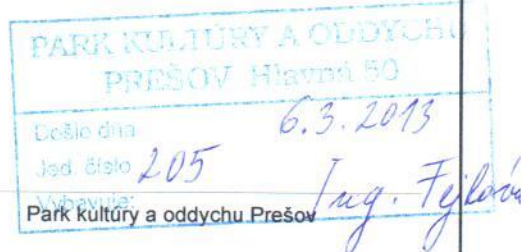 PARK KULTÚRY A ODDYCHU
PREŠOV Hlavná 50
Došlo dňa 6.3.2013
Jed. číslo 205
Vybavuje: Ing. Fejková
Park kultúry a oddychu Prešov